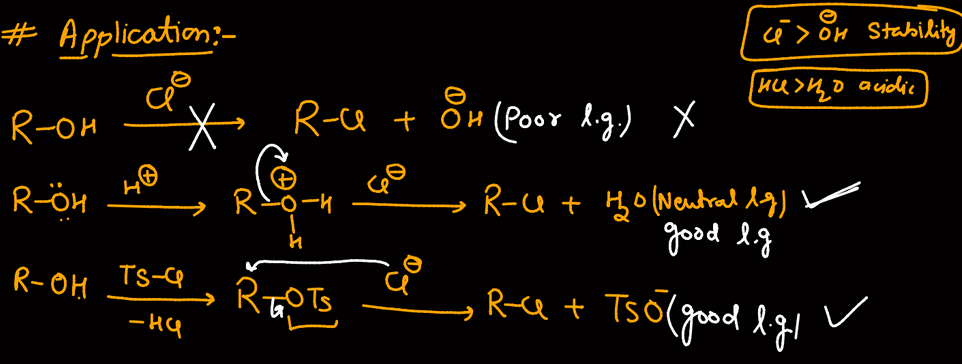 # Application:-
Cl⁻ > ⊖OH Stability
HCl > H₂O acidic
R-OH Cl⊖ → R-Cl + ⊖OH (Poor l.g.) X
R-ÖH H⊕ → R-O⊕-H Cl⊖ → R-Cl + H₂O (Neutral l.g) ✓
H good l.g
R-OH Ts-Cl → R-OTs Cl⊖ → R-Cl + TsO⁻ (good l.g) ✓
-HCl